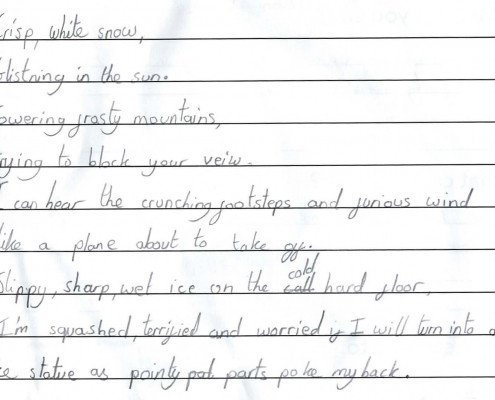 Crisp, white snow,
Glistning in the sun.
Towering frosty mountains,
Trying to block your veiw.
I can hear the crunching footsteps and furious wind
like a plane about to take off.
Slippy, sharp, wet ice on the cold hard floor,
I'm squashed, terrified and worried if I will turn into a
ice statue as pointy parts poke my back.